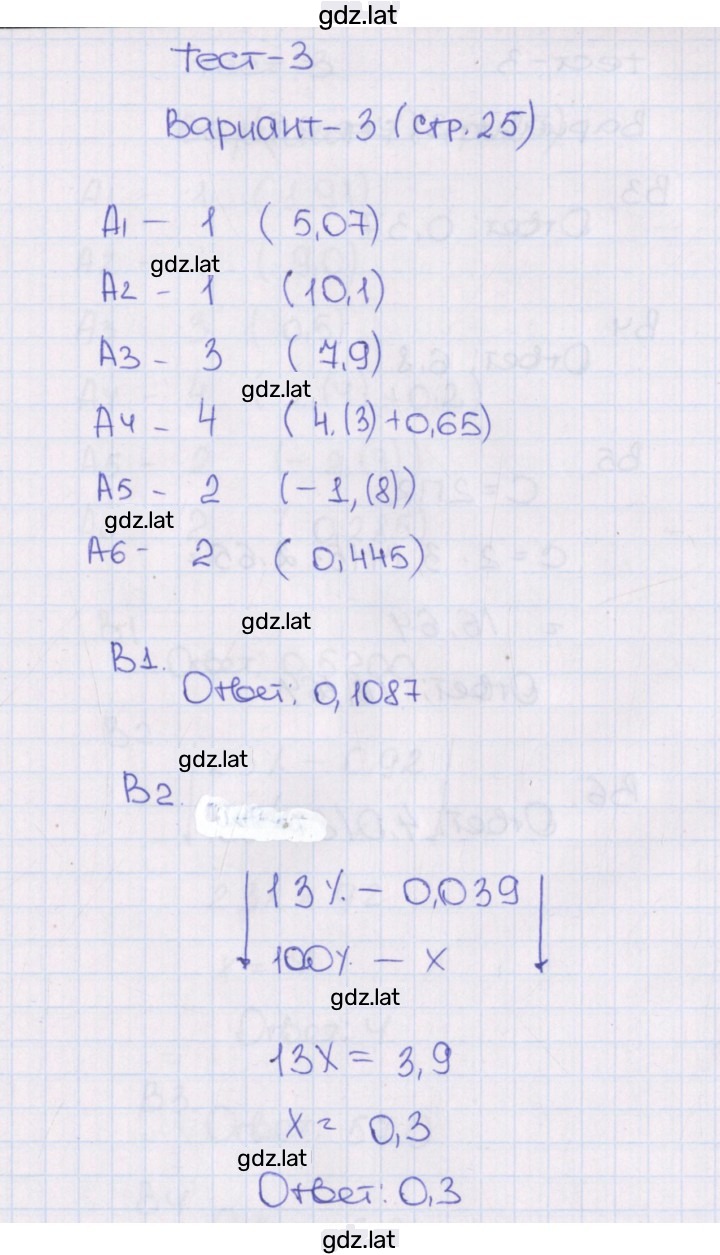 gdz.lat
Тест-3
Вариант-3 (стр.25)
А1 - 1 (5,07)
gdz.lat
А2 - 1 (10,1)
А3 - 3 (7,9)
gdz.lat
А4 - 4 (4.(3)+0,65)
А5 - 2 (-1,(8))
gdz.lat
А6 - 2 (0,445)
gdz.lat
В1.
Ответ: 0,1087
gdz.lat
В2.
13% - 0,039
100% - х
gdz.lat
13х = 3,9
х = 0,3
gdz.lat
Ответ: 0,3
gdz.lat